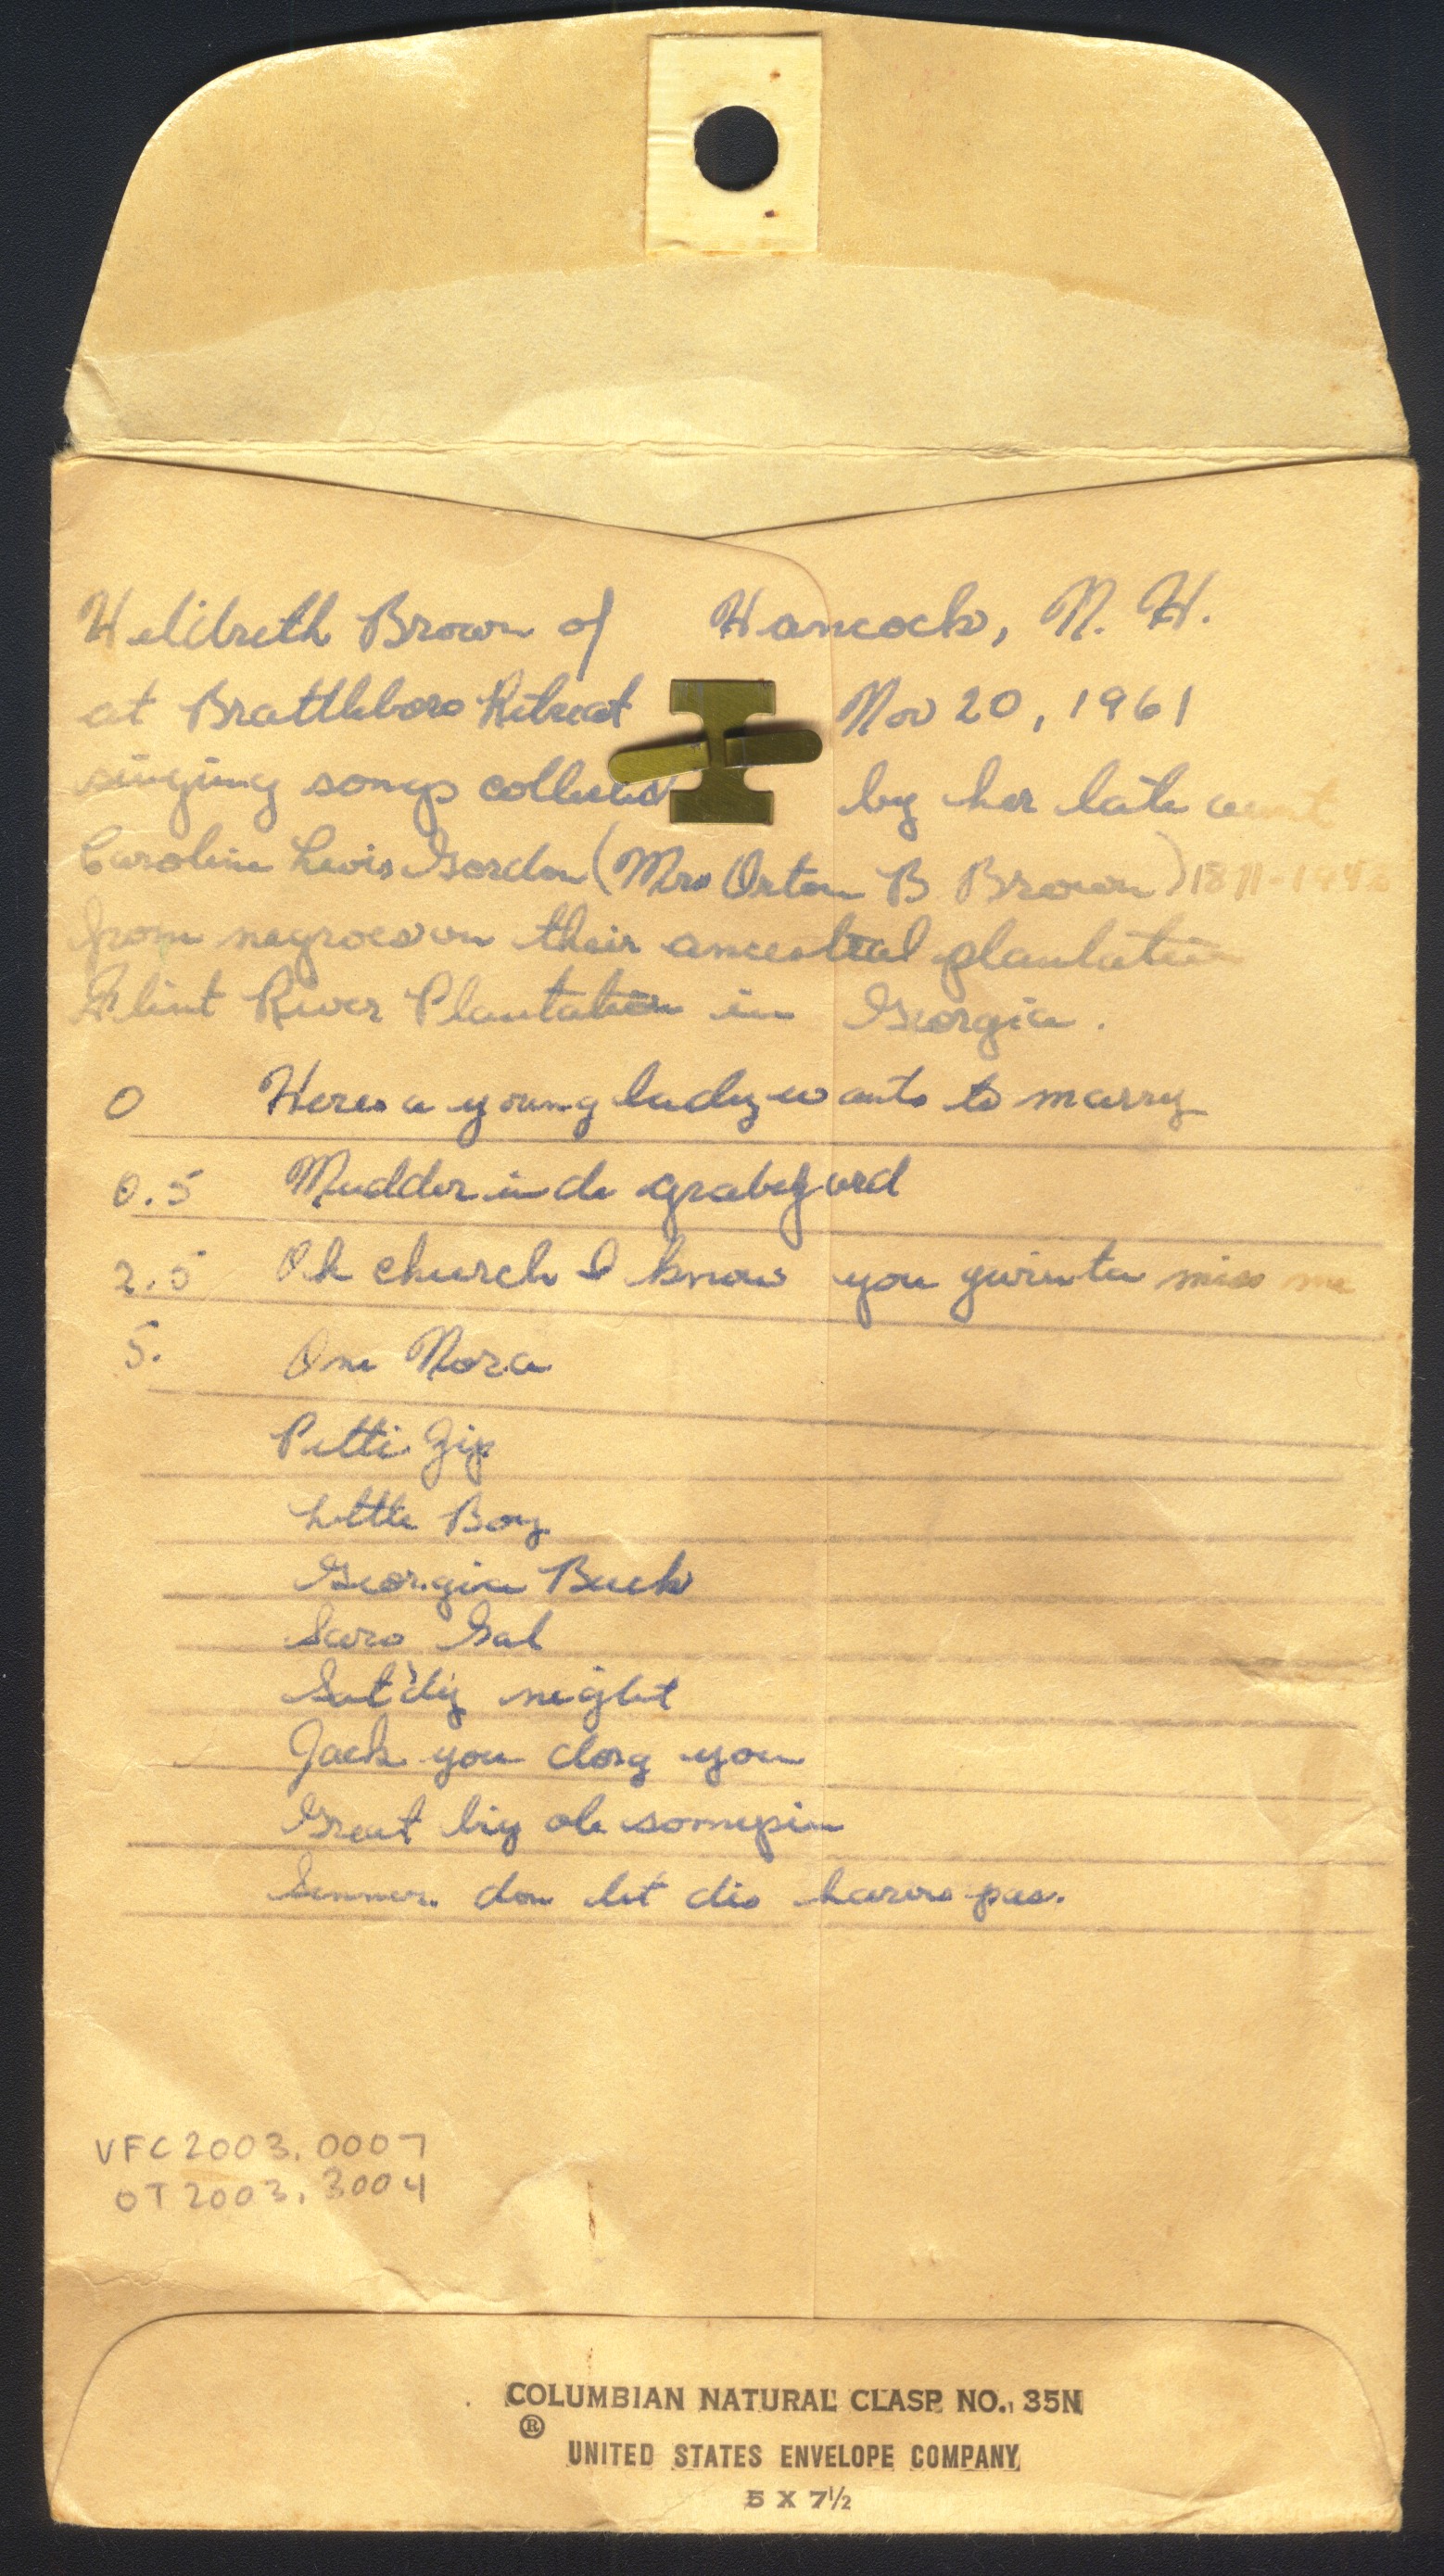 Heldreth Brown of Hancock, N. H.
at Brattleboro Retreat Nov 20, 1961
singing songs collected by her late aunt
Caroline Lewis Gordon (Mrs Orton B Brown)
from negroes on their ancestral plantation
Flint River Plantation in Georgia.
0 Heres a young lady wants to marry
0.5 Mudder in de grabeyard
2.5 Oh church I know you gwinta miss me
5. One Nora
Petti Zip
Little Boy
Georgia Buck
Saro Gal
Sat'dy night
Jack you dorg you
Great big ole somepin
Sinner don let dis harves pas.
VFC2003.0007
OT2003.3004
COLUMBIAN NATURAL CLASP NO. 35N
®
UNITED STATES ENVELOPE COMPANY
5 X 7½